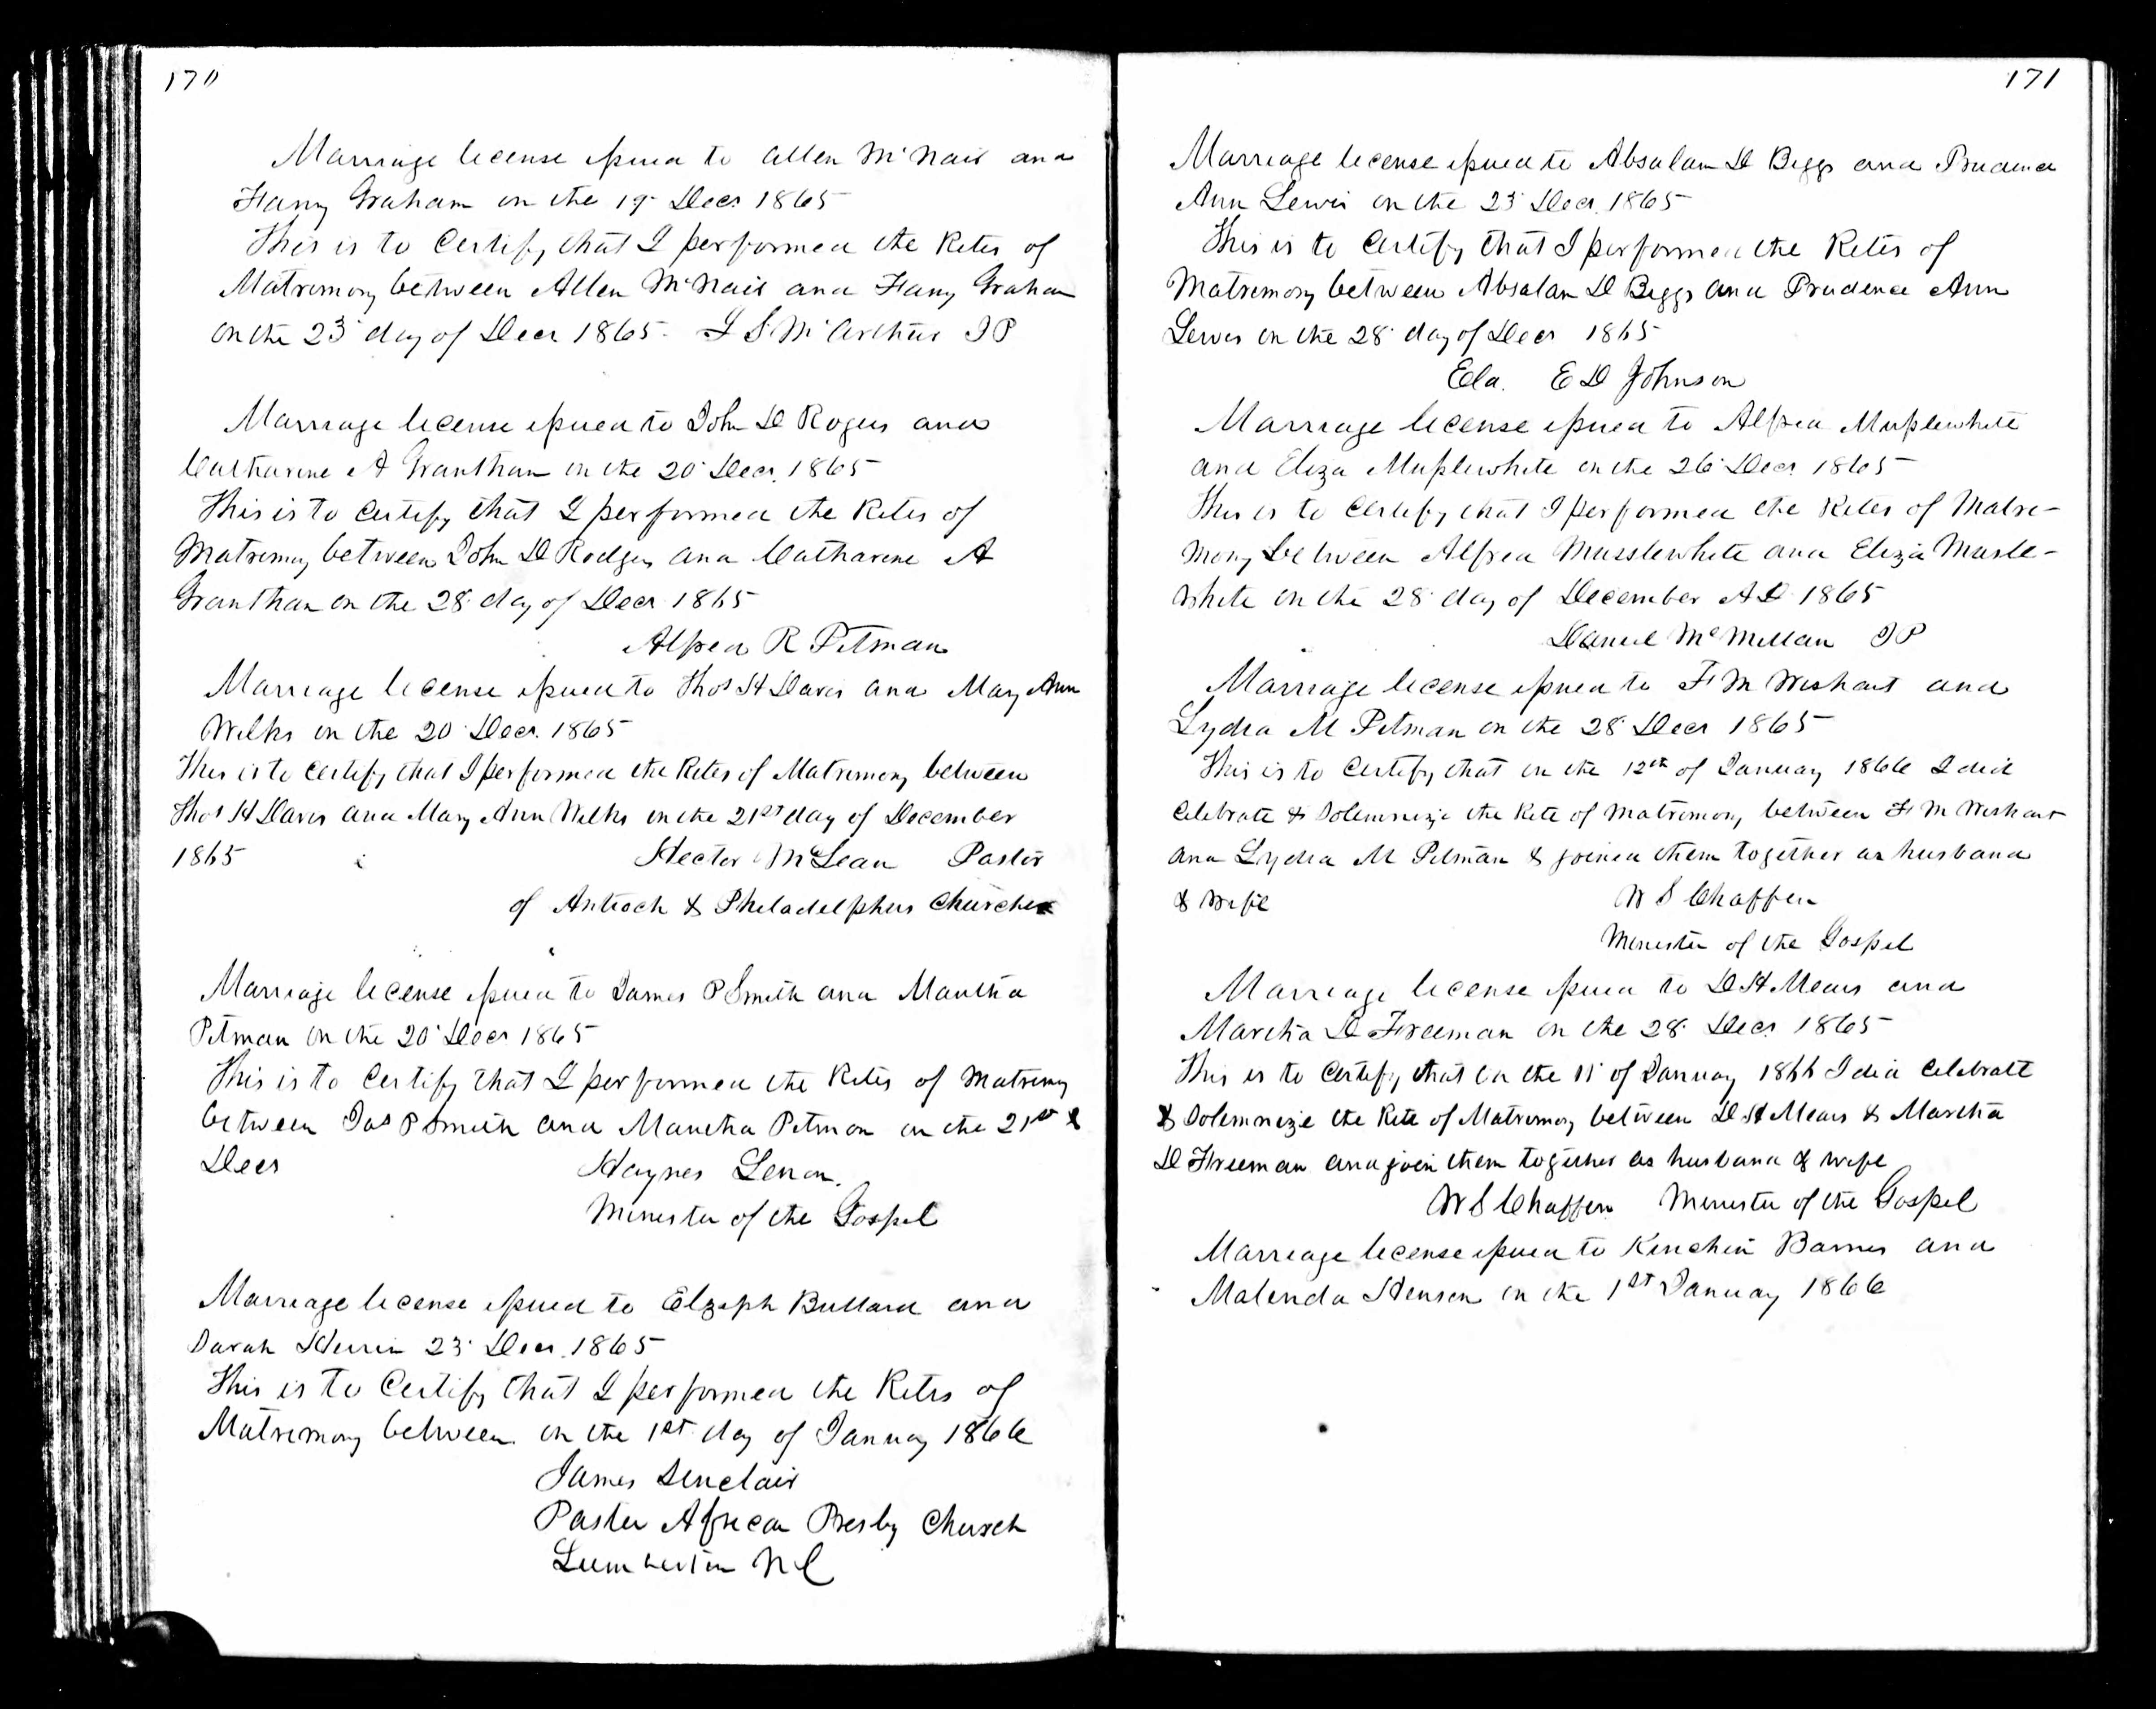 170
Marriage license issued to Allen McNair and
Fanny Graham on the 19 Decr 1865
This is to Certify that I performed the Rites of
Matrimony between Allen McNair and Fany Graham
on the 23 day of Decr 1865. J S McArthur JP
Marriage license issued to John D Rogers and
Catharine A Grantham on the 20 Decr. 1865
This is to Certify that I performed the Rites of
Matrimony between John D Rodgers and Catharine A
Grantham on the 28 day of Decr 1865
Alfred R Pitman
Marriage license issued to Thos H Davis and Mary Ann
Wilks on the 20 Decr. 1865
This is to Certify that I performed the Rites of Matrimony between
Thos H Davis and Mary Ann Wilks on the 21st day of December
1865 Hector McLean Pastor
of Antioch & Philadelphus Churches
Marriage license issued to James P Smith and Martha
Pitman on the 20 Decr 1865
This is to Certify that I performed the Rites of Matrimony
between Jas P Smith and Martha Pitman on the 21st
Decr Haynes Lenon.
Minister of the Gospel
Marriage license issued to Elzeph Bullard and
Sarah Herrin 23 Decr. 1865
This is to Certify that I performed the Rites of
Matrimony between on the 1st day of January 1866
James Sinclair
Paster African Presby Church
Lumberton NC
171
Marriage license issued to Absalam D Biggs and Prudence
Ann Lewis on the 23 Decr. 1865
This is to Certify that I performed the Rites of
Matrimony between Absalam D Biggs and Prudence Ann
Lewis on the 28 day of Decr 1865
Eld. E D Johnson
Marriage license issued to Alfred Musslewhite
and Eliza Musslewhite on the 26 Decr 1865
This is to Certify that I performed the Rites of Matri-
mony between Alfred Musslewhite and Eliza Musle-
white on the 28 day of December AD 1865
Daniel McMillan JP
Marriage license issued to F M Wishart and
Lydia M Pitman on the 28 Decr 1865
This is to Certify that on the 12th of January 1866 I did
Celebrate & Solemnize the Rite of Matrimony between F M Wishart
and Lydia M Pitman & joined them together as husband
& wife W S Chaffen
Minister of the Gospel
Marriage license issued to D H Mears and
Martha D Freeman on the 28 Decr 1865
This is to Certify that on the 11 of January 1866 I did Celebrate
& Solemnize the Rite of Matrimony between D H Mears & Martha
D Freeman and join them together as husband & wife
W S Chaffen Minister of the Gospel
Marriage license issued to Kinchin Barnes and
Malinda Henson on the 1st January 1866